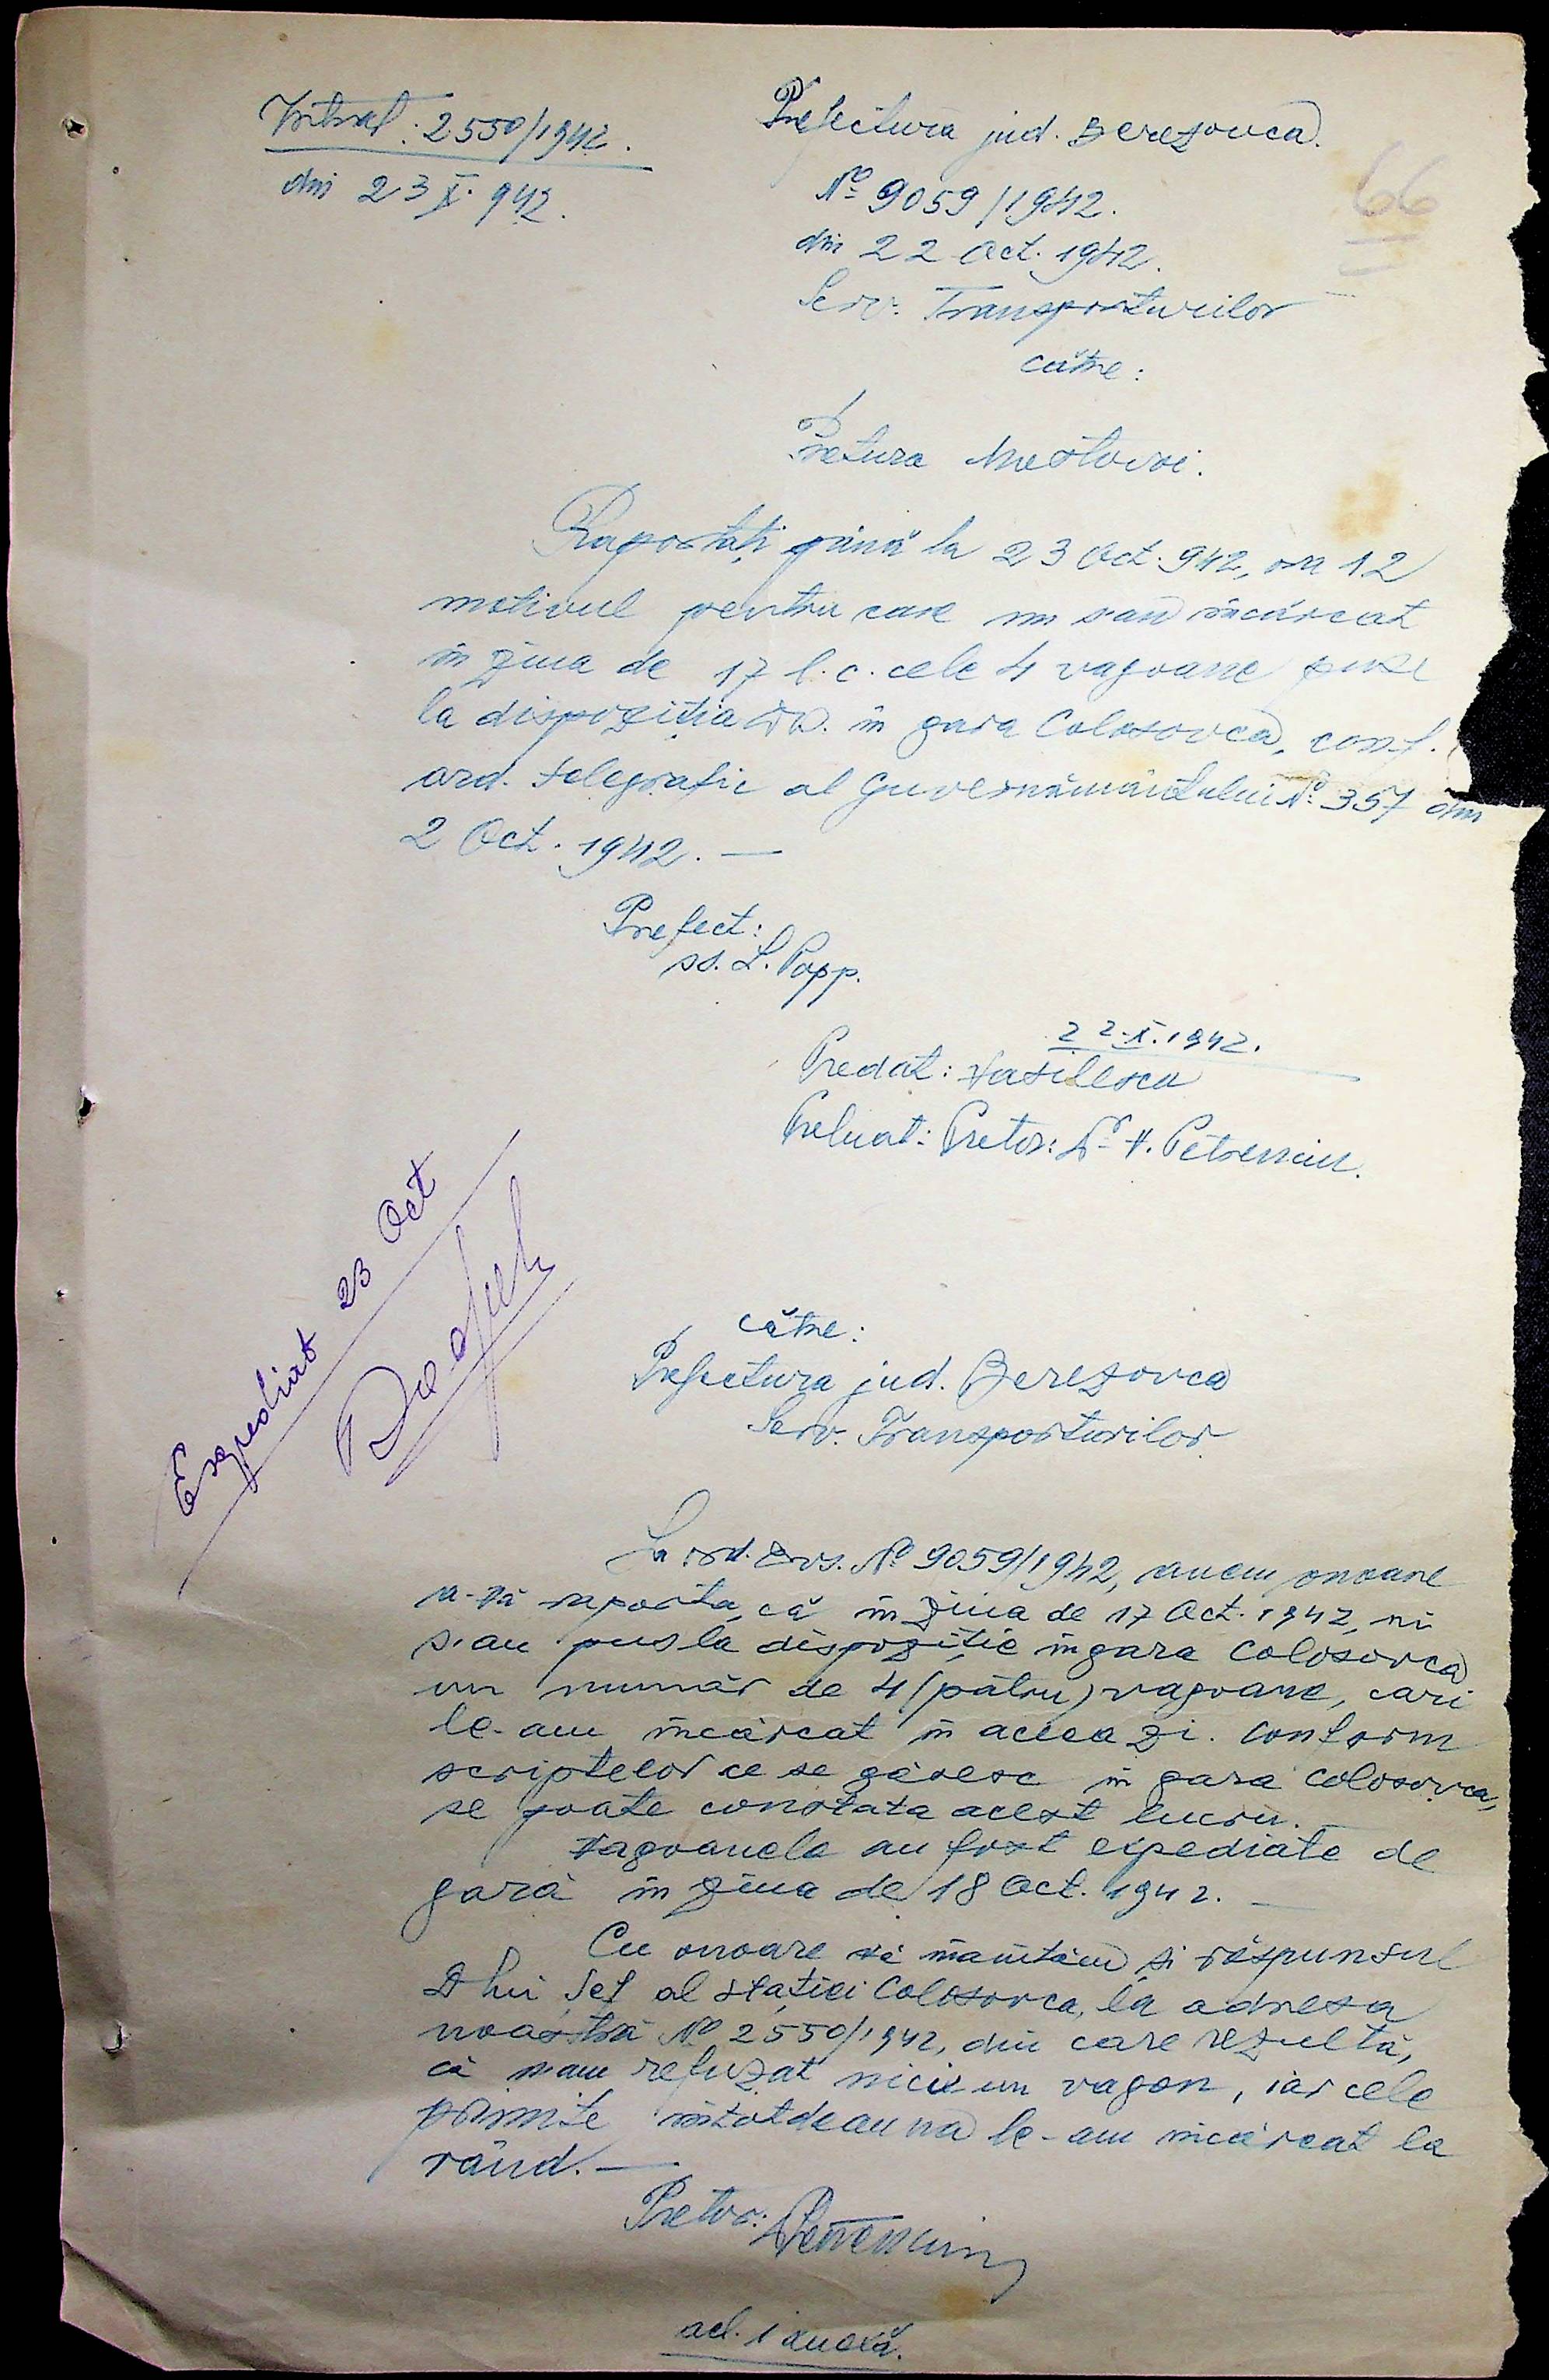 Intrat: 2550/1942.
din 23 X. 942.
Prefectura jud. Berezovca.
No 9059/1942.
din 22 Oct. 1942.
Serv. Transporturilor
către:
66
Pretura Mostovoi.
Raportați până la 23 Oct. 942, ora 12
motivul pentru care nu s'au încărcat
în ziua de 17 l.c. cele 4 vagoane puse
la dispoziția Dv. în gara Colosovca, conf.
ord. telegrafic al Guvernământului No 357 din
2 Oct. 1942. —
Prefect:
ss. L. Popp.
22.X.1942.
Predat: Vasilescu
Preluat: Pretor: Dr V. Petrenciu.
Expediat 23 Oct
către:
Prefectura jud. Berezovca
Serv. Transporturilor
La ord. Dvs. No 9059/1942, avem onoare
a-vă raporta, că în ziua de 17 Oct. 1942, ni
s'au pus la dispoziție în gara Colosovca
un număr de 4 (patru) vagoane, cari
le-am încărcat în aceea zi. Conform
scriptelor ce se găsesc în gara Colosovca,
se poate constata acest lucru.
Vagoanele au fost expediate de
gară în ziua de 18 Oct. 1942. —
Cu onoare vă înaintăm și răspunsul
Dlui Șef al stației Colosovca, la adresa
noastră No 2550/1942, din care rezultă,
că n'am refuzat nici un vagon, iar cele
primite întotdeauna le-am încărcat la
rând. —
Pretor: Petrenciu
ad. 1 anexă.